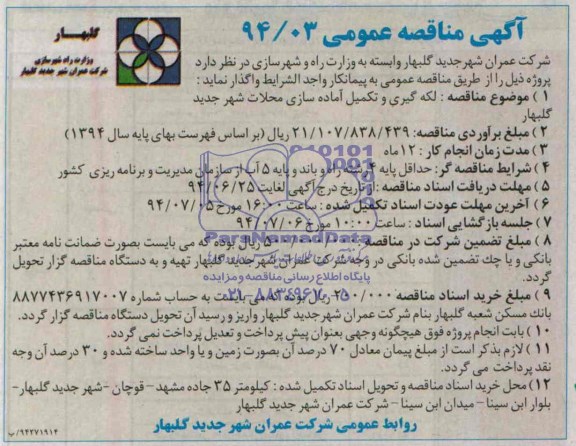 آگهی مناقصه عمومی ۹۴/۰۳
گلبهار
وزارت راه و شهرسازی
شرکت عمران شهر جدید گلبهار
شرکت عمران شهرجدید گلبهار وابسته به وزارت راه و شهرسازی در نظر دارد
پروژه ذیل را از طریق مناقصه عمومی به پیمانکار واجد الشرایط واگذار نماید :
۱ ) موضوع مناقصه : لکه گیری و تکمیل آماده سازی محلات شهر جدید
گلبهار
۲ ) مبلغ برآوردی مناقصه: ۲۱/۱۰۷/۸۳۸/۴۳۹ ریال (بر اساس فهرست بهای پایه سال ۱۳۹۴)
۳ ) مدت زمان انجام کار : ۱۲ ماه
۴ ) شرایط مناقصه گر: حداقل پایه ۴ رشته راه و باند و پایه ۵ آب از سازمان مدیریت و برنامه ریزی کشور
۵ ) مهلت دریافت اسناد مناقصه : از تاریخ درج آگهی لغایت ۹۴/۰۶/۲۵
۶ ) آخرین مهلت عودت اسناد تکمیل شده : ساعت ۱۶:۰۰ مورخ ۹۴/۰۷/۰۵
۷ ) جلسه بازگشایی اسناد : ساعت ۱۰:۰۰ مورخ ۹۴/۰۷/۰۶
۸ ) مبلغ تضمین شرکت در مناقصه ریال بوده که می بایست بصورت ضمانت نامه معتبر
بانکی و یا چک تضمین شده بانکی در وجه شرکت عمران شهر جدید گلبهار تهیه و به دستگاه مناقصه گزار تحویل
گردد.
۹ ) مبلغ خرید اسناد مناقصه ریال بوده که می بایست به حساب شماره ۸۸۷۷۴۳۶۹۱۷۰۰۷
بانک مسکن شعبه گلبهار بنام شرکت عمران شهرجدید گلبهار واریز و رسید آن تحویل دستگاه مناقصه گزار گردد.
۱۰ ) بابت انجام پروژه فوق هیچگونه وجهی بعنوان پیش پرداخت و تعدیل پرداخت نمی گردد.
۱۱ ) لازم بذکر است از مبلغ پیمان معادل ۷۰ درصد آن بصورت زمین و یا واحد ساخته شده و ۳۰ درصد آن وجه
نقد پرداخت می گردد.
۱۲) محل خرید اسناد مناقصه و تحویل اسناد تکمیل شده : کیلومتر ۳۵ جاده مشهد - قوچان -شهر جدید گلبهار-
بلوار ابن سینا - میدان ابن سینا - شرکت عمران شهر جدید گلبهار
روابط عمومی شرکت عمران شهر جدید گلبهار
۹۴۲۷۱۹۱۴/پ
ParsNamadData
پایگاه اطلاع رسانی مناقصه و مزایده
۰۲۱-۸۸۳۴۹۶۷۰-۵